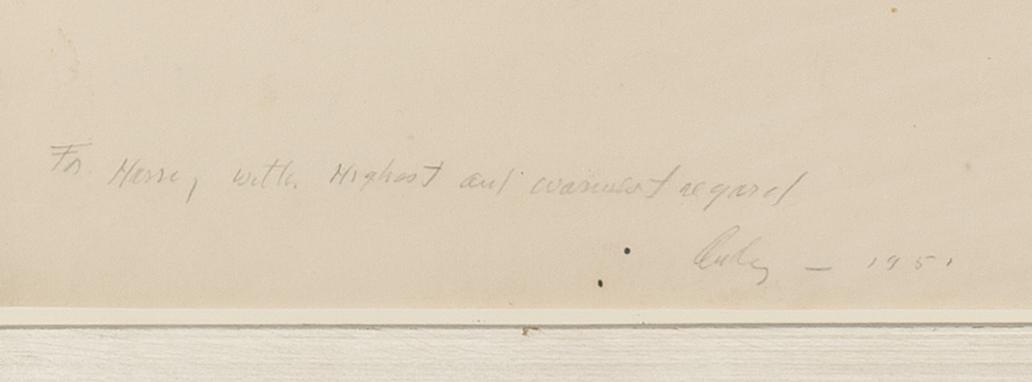 For Harry, with Highest and warmest regard
— 1951